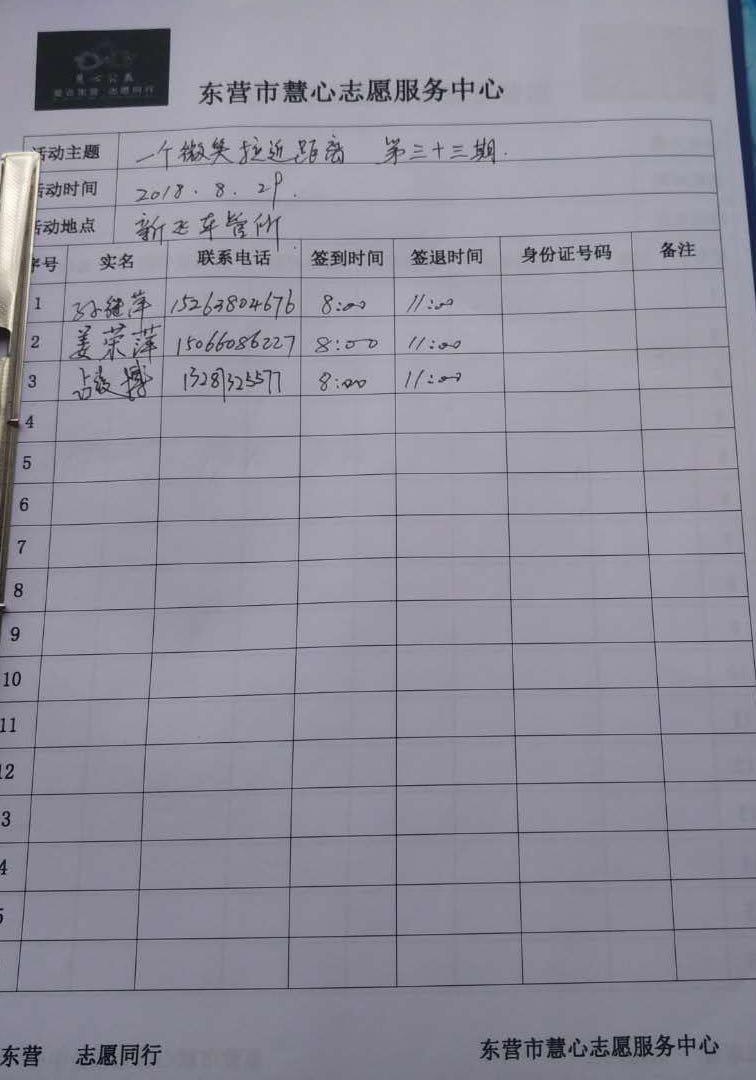 慧心公益
爱在东营 志愿同行
东营市慧心志愿服务中心
活动主题 一个微笑拉近距离 第三十三期.
活动时间 2018.8.29.
活动地点 新区车管所
序号 实名 联系电话 签到时间 签退时间 身份证号码 备注
1 孙继萍 15263804676 8:00 11:00
2 姜荣萍 15066086227 8:00 11:00
3 8:00 11:00
4
5
6
7
8
9
10
11
12
3
4
5
东营 志愿同行 东营市慧心志愿服务中心